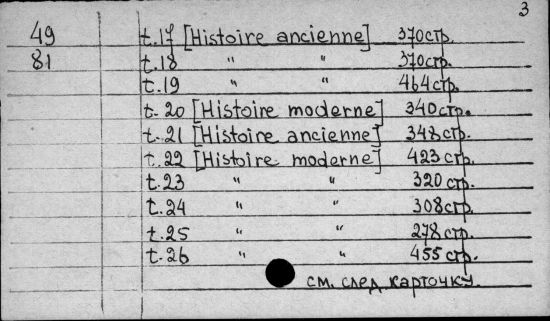 3
49 t.17 [Histoire ancienne] 370 стр.
81 t.18 " " 370 стр.
t.19 " " 464 стр.
t.20 [Histoire moderne] 340 стр.
t.21 [Histoire ancienne] 348 стр.
t.22 [Histoire moderne] 423 стр.
t.23 " " 320 стр.
t.24 " " 308 стр.
t.25 " " 278 стр.
t.26 " " 455 стр.
см. след. карточку.